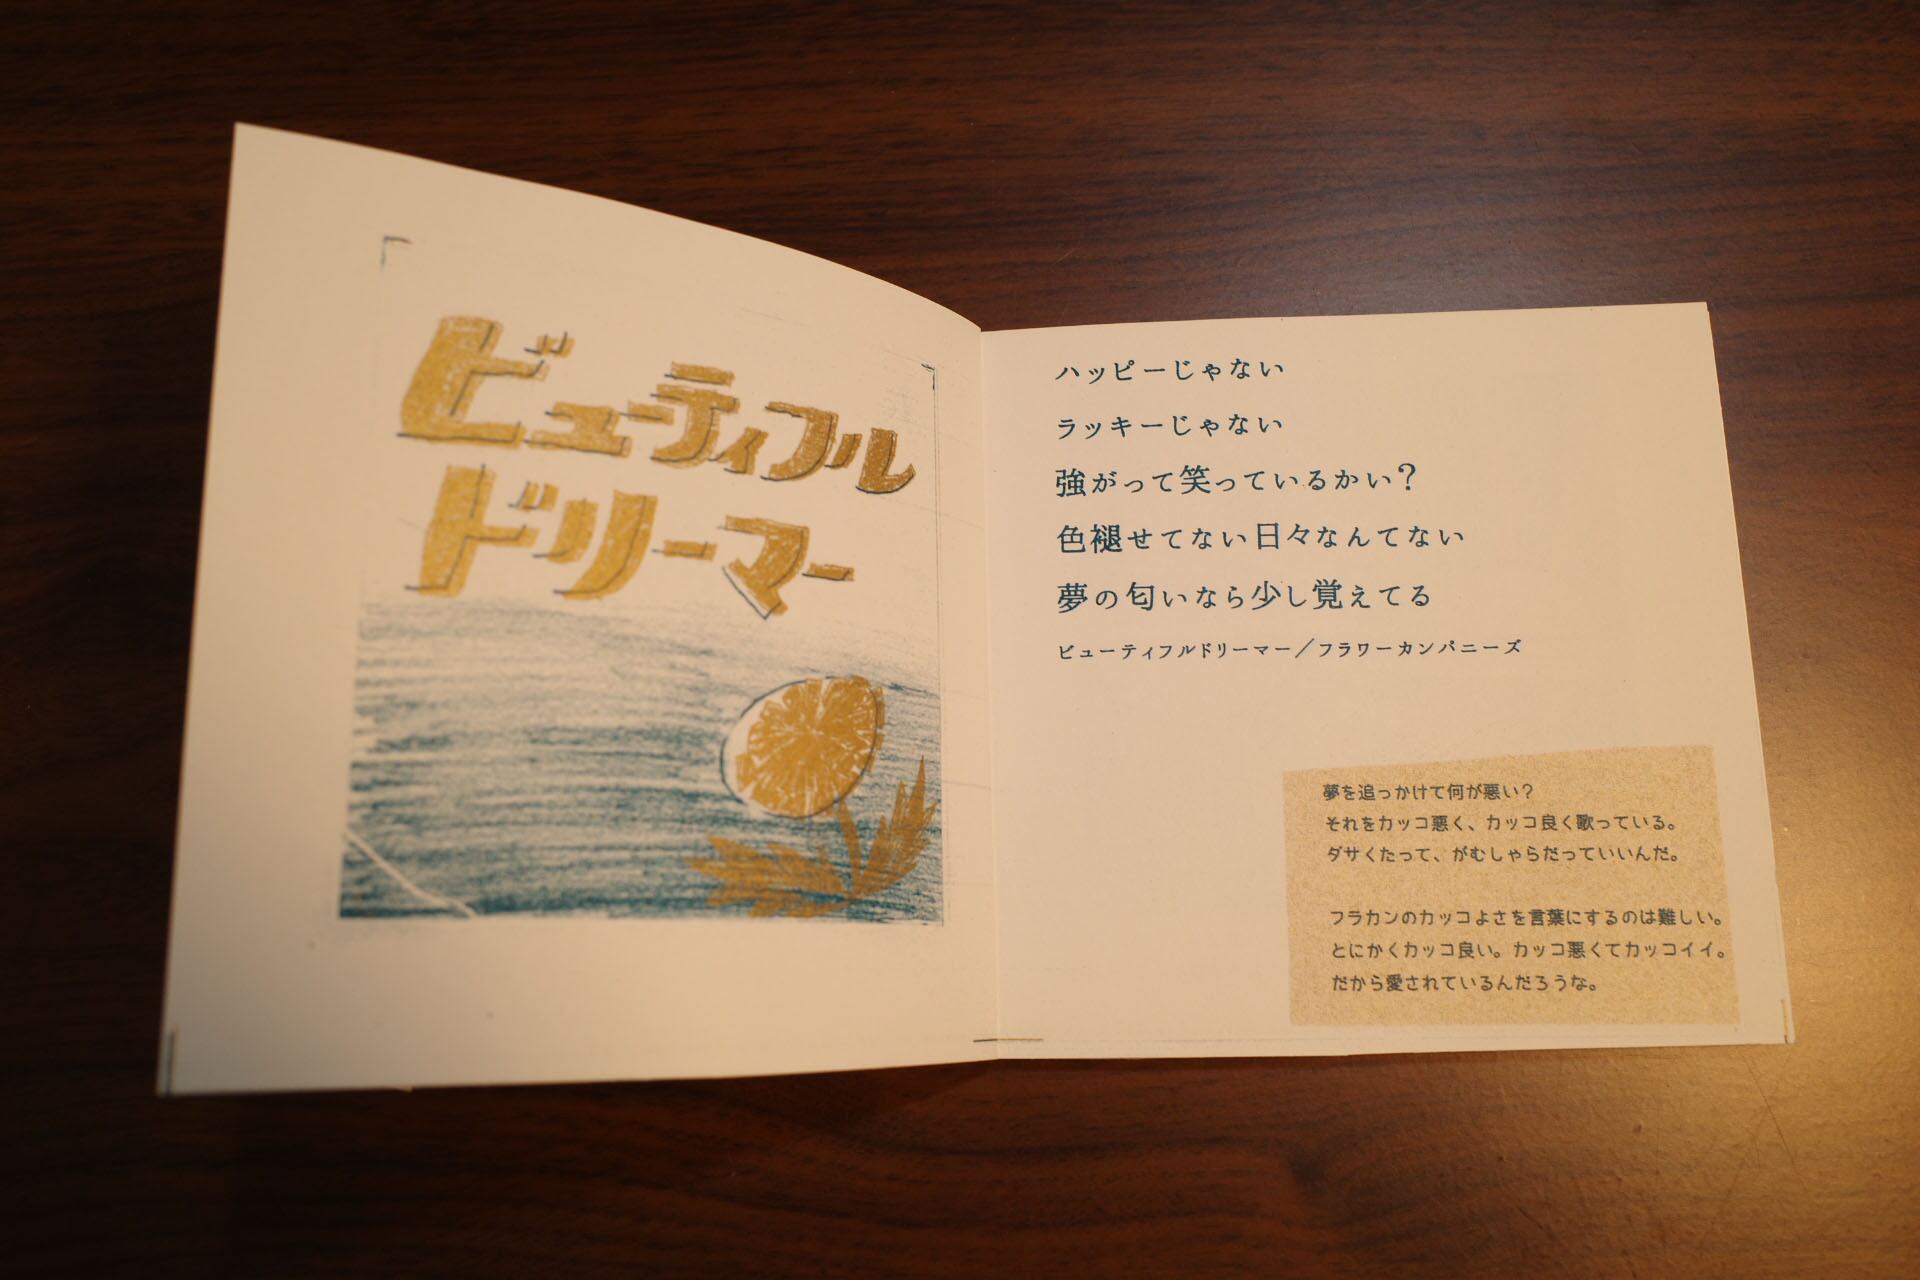 ビューティフル
ドリーマー
ハッピーじゃない
ラッキーじゃない
強がって笑っているかい？
色褪せてない日々なんてない
夢の匂いなら少し覚えてる
ビューティフルドリーマー／フラワーカンパニーズ
夢を追っかけて何が悪い？
それをカッコ悪く、カッコ良く歌っている。
ダサくたって、がむしゃらだっていいんだ。
フラカンのカッコよさを言葉にするのは難しい。
とにかくカッコ良い。カッコ悪くてカッコイイ。
だから愛されているんだろうな。